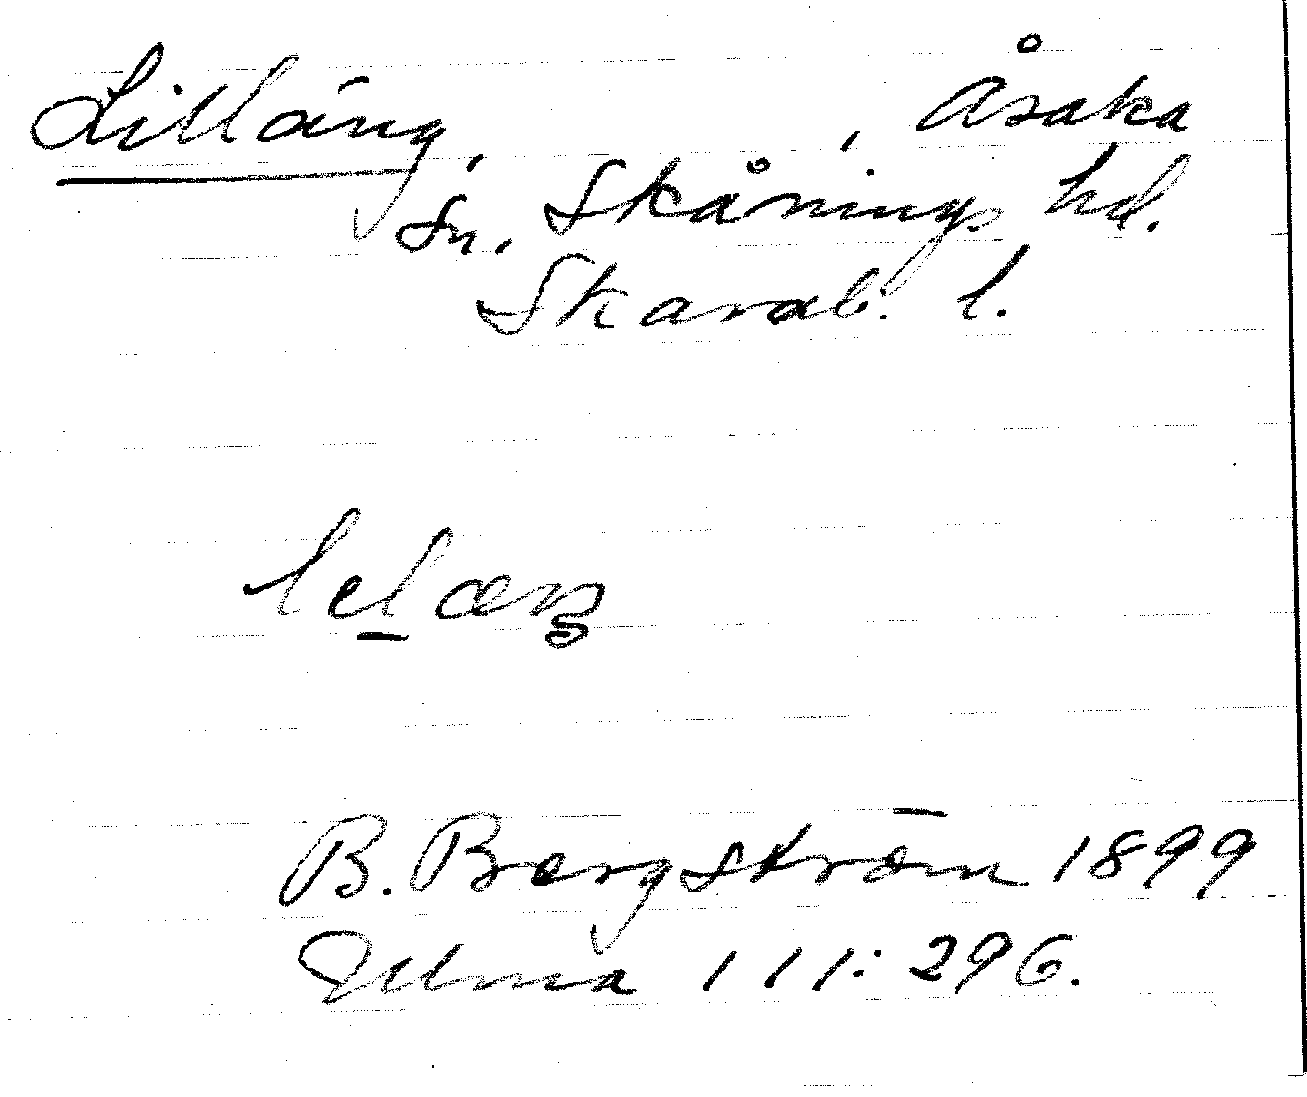 Lilläng, , Åsaka
sn. Skånings hd.
Skarab. l.
B. Bergström 1899
Ulma 111:296.